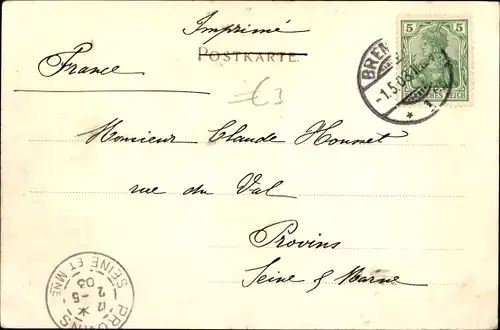 Imprimé
POSTKARTE.
France
5 5
REICH
BREM
-1.5.03
* 1
€3
Monsieur Claude Hommet
rue du Val
Provins
Seine & Marne
PROVINS
SEINE ET MNE
2 -5
03